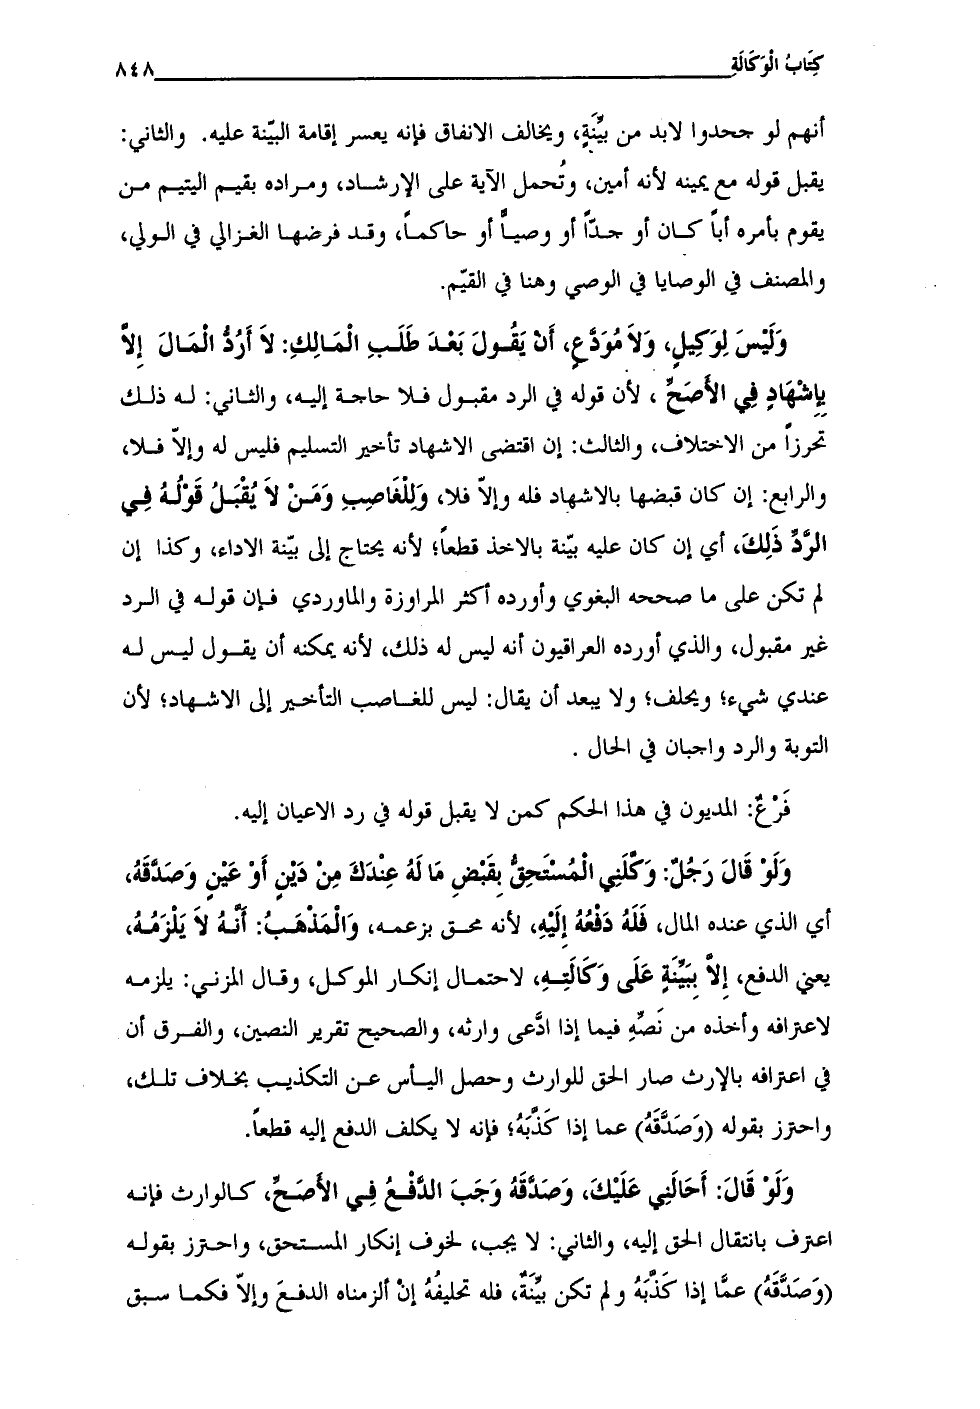 كِتَابُ الْوَكَالَةِ ٨٤٨
أنهم لو جحدوا لابد من بيِّنَةٍ، ويخالف الانفاق فإنه يعسر إقامة البيّنة عليه. والثاني:
يقبل قوله مع يمينه لأنه أمين، وتُحمل الآية على الإرشاد، ومراده بقيم اليتيم من
يقوم بأمره أباً كان أو جدّاً أو وصياً أو حاكماً، وقد فرضها الغزالي في الولي،
والمصنف في الوصايا في الوصي وهنا في القيّم.
وَلَيْسَ لِوَكِيلٍ، وَلاَ مُوَدَّعٍ، أَنْ يَقُولَ بَعْدَ طَلَبِ الْمَالِكِ: لاَ أَرُدُّ الْمَالَ إِلاَّ
بِإِشْهَادٍ فِي الأَصَحِّ ، لأن قوله في الرد مقبول فلا حاجة إليه، والثاني: له ذلك
تحرزاً من الاختلاف، والثالث: إن اقتضى الاشهاد تأخير التسليم فليس له وإلاّ فلا،
والرابع: إن كان قبضها بالاشهاد فله وإلاّ فلا، وَلِلْغَاصِبِ وَمَنْ لاَ يُقْبَلُ قَوْلُهُ فِي
الرَّدِّ ذَلِكَ، أي إن كان عليه بيّنة بالاخذ قطعاً؛ لأنه يحتاج إلى بيّنة الاداء، وكذا إن
لم تكن على ما صححه البغوي وأورده أكثر المراوزة والماوردي فإن قوله في الرد
غير مقبول، والذي أورده العراقيون أنه ليس له ذلك، لأنه يمكنه أن يقول ليس له
عندي شيء؛ ويحلف؛ ولا يبعد أن يقال: ليس للغاصب التأخير إلى الاشهاد؛ لأن
التوبة والرد واجبان في الحال .
فَرْعٌ: المديون في هذا الحكم كمن لا يقبل قوله في رد الاعيان إليه.
وَلَوْ قَالَ رَجُلٌ: وَكَّلَنِي الْمُسْتَحِقُّ بِقَبْضِ مَا لَهُ عِنْدَكَ مِنْ دَيْنٍ أَوْ عَيْنٍ وَصَدَّقَهُ،
أي الذي عنده المال، فَلَهُ دَفْعُهُ إِلَيْهِ، لأنه محق بزعمه، وَالْمَذْهَبُ: أَنَّهُ لاَ يَلْزَمُهُ،
يعني الدفع، إِلاَّ بِبَيِّنَةٍ عَلَى وَكَالَتِهِ، لاحتمال إنكار الموكل، وقال المزني: يلزمه
لاعترافه وأخذه من نَصِّهِ فيما إذا ادَّعى وارثه، والصحيح تقرير النصين، والفرق أن
في اعترافه بالإرث صار الحق للوارث وحصل اليأس عن التكذيب بخلاف تلك،
واحترز بقوله (وَصَدَّقَهُ) عما إذا كَذَّبَهُ؛ فإنه لا يكلف الدفع إليه قطعاً.
وَلَوْ قَالَ: أَحَالَنِي عَلَيْكَ، وَصَدَّقَهُ وَجَبَ الدَّفْعُ فِي الأَصَحِّ، كالوارث فإنه
اعترف بانتقال الحق إليه، والثاني: لا يجب، لخوف إنكار المستحق، واحترز بقوله
(وَصَدَّقَهُ) عمَّا إذا كَذَّبَهُ ولم تكن بيِّنَةٌ، فله تحليفُهُ إنْ ألزمناه الدفعَ وإلاّ فكما سبق